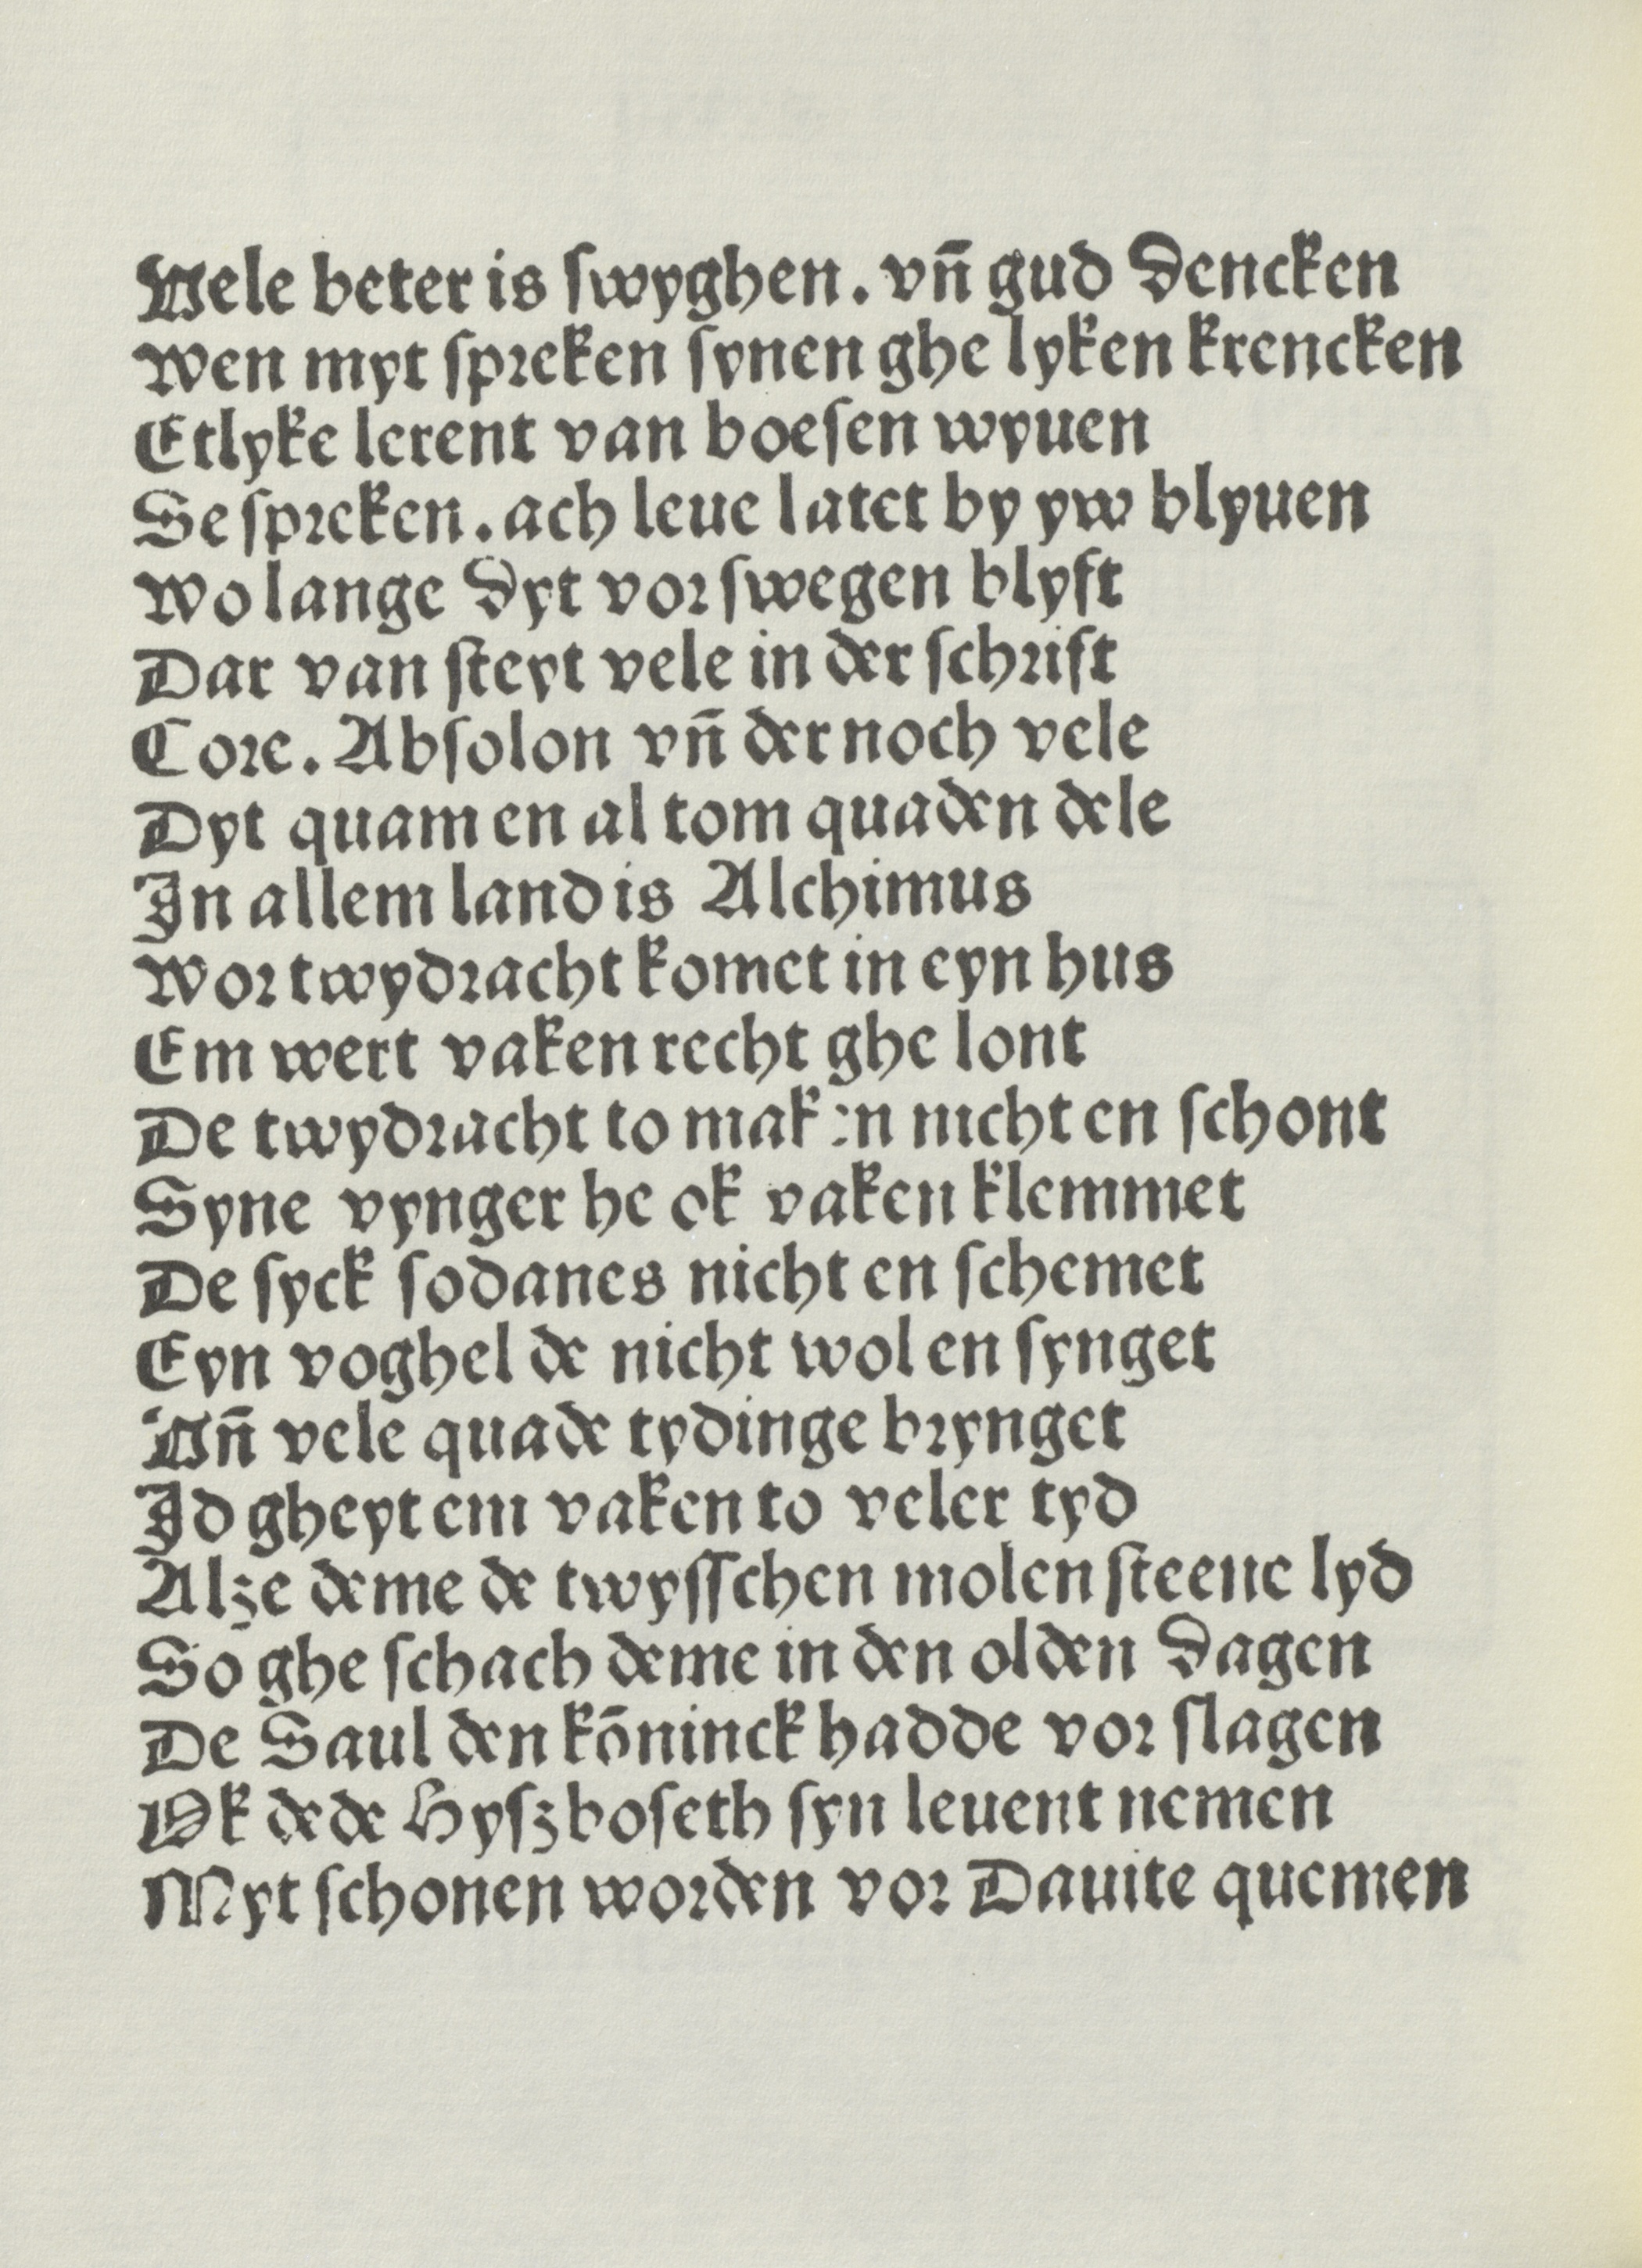 Vele beter is ſwyghen. vn̄ gud dencken
Wen myt ſpreken ſynen ghe lyken krencken
Etlyke lerent van boeſen wyuen
Se ſpreken. ach leue latet by yw blyuen
Wo lange dyt vor ſwegen blyft
Dar van ſteyt vele in der ſchrift
Core. Abſolon vn̄ der noch vele
Dyt quam en al tom quaden dele
In allem land is Alchimus
Wor twydracht komet in eyn hus
Em wert vaken recht ghe lont
De twydracht to maken nicht en ſchont
Syne vynger he ok vaken klemmet
De ſyck ſodanes nicht en ſchemet
Eyn voghel de nicht wol en ſynget
Vn̄ vele quade tydinge brynget
Id gheyt em vaken to veler tyd
Alze deme de twyſſchen molen ſteene lyd
So ghe ſchach deme in den olden dagen
De Saul den kōninck hadde vor ſlagen
Ok dede Hyſzboſeth ſyn leuent nemen
Myt ſchonen worden vor Dauite quemen